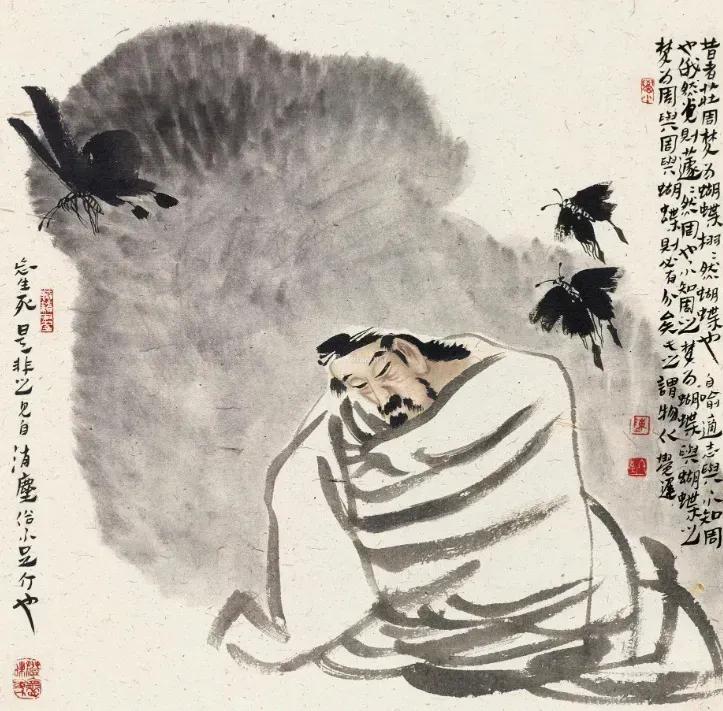 昔者莊周梦为蝴蝶栩〻然蝴蝶也自喻適志與不知周
也俄然覺則蘧〻然周也不知周之梦为蝴蝶與蝴蝶之
梦为周與周與蝴蝶則必有分矣此之謂物化 覺遲
忘生死是非之見自消塵俗不足介也